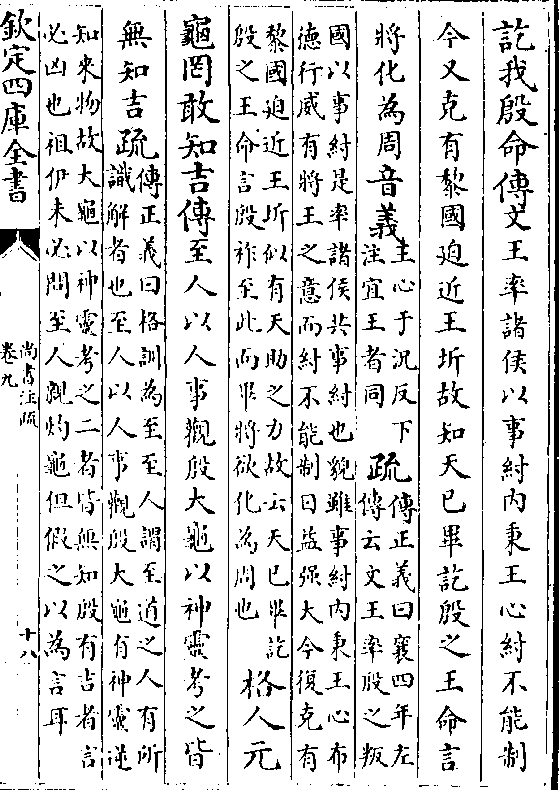 訖我殷命傳文王率諸侯以事紂内秉王心紂不能制
今又克有黎國迫近王圻故知天已畢訖殷之王命言
將化為周音義王心于況反下
注宜王者同疏傳正義曰襄四年左
傳云文王率殷之叛
國以事紂是率諸侯共事紂也貌雖事紂内秉王心布
德行威有將王之意而紂不能制日益强大今復克有
黎國迫近王圻似有天助之力故云天已畢訖
殷之王命言殷祚至此而畢將欲化為周也格人元
龜罔敢知吉傳至人以人事觀殷大龜以神靈考之皆
無知吉疏傳正義曰格訓為至至人謂至道之人有所
識解者也至人以人事觀殷大龜有神靈逆
知來物故大龜以神靈考之二者皆無知殷有吉者言
必凶也祖伊未必問至人親灼龜但假之以為言耳
欽定四庫全書
尚書注疏
卷九
十八